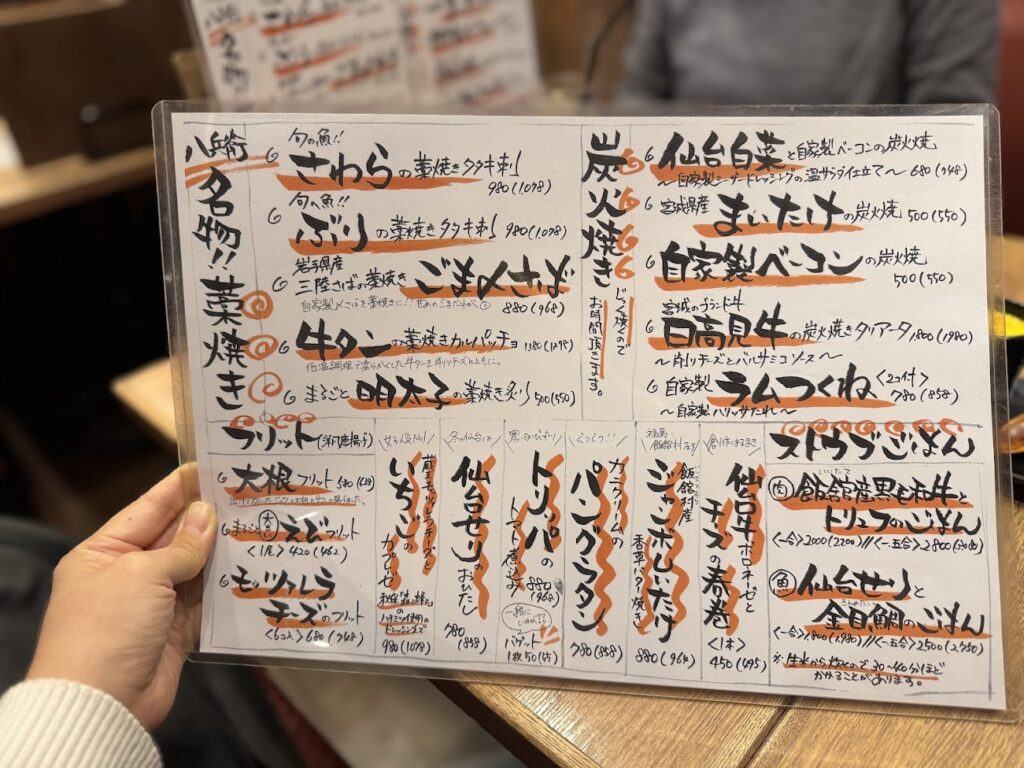 名物!! 藁焼き
旬の魚!!
さわらの藁焼きタタキ刺
980(1,078)
旬の魚!!
ぶりの藁焼きタタキ刺 980(1,078)
岩手県産
三陸さばの藁焼き ごま〆さば
880(968)
牛タンの藁焼きカルパッチョ
低温調理で柔らかくした牛タンを削りチーズとともに。
まるごと 明太子の藁焼き炙り 500(550)
炭火焼き
じっくり焼くので
お時間頂きます。
仙台白菜と自家製ベーコンの炭火焼
〜自家製シーザードレッシングの温サラダ仕立て〜 680(748)
宮城県産 まいたけの炭火焼 500(550)
自家製ベーコンの炭火焼
500(550)
宮城のブランド牛
日高見牛の炭火焼きタリアータ 1,800(1,980)
〜削りチーズとバルサミコソース〜
自家製 ラムつくね <2コ付>
780(858)
〜自家製ハリッサたれ〜
フリット(洋風唐揚げ)
大根フリット 580(638)
まるごと 大 えびフリット
<1尾> 420(462)
モッツァレラ
チーズのフリット
<6コ入> 680(748)
女子人気No1
蔵王モッツァレラチーズと
いちごの
カプレーゼ
ハチミツ使用の
ドレッシングで
980(1,078)
冬の仙台は
仙台せりの
おひたし
780
(858)
トリッパの
トマト煮込み
880
(968)
一緒に
いかがですか
バゲット
1枚50(55)
ぐつぐつ!!
カニクリームの
パングラタン
780(858)
福島・
飯舘村より
飯舘村産
ジャンボしいたけ
香草バター焼き
880(968)
創作はるまき
仙台牛ボロネーゼと
チーズの春巻
<1本>
450(495)
ストウブごはん
肉 飯舘産黒毛和牛と
トリュフのごはん
<一合>2000(2200)//<一.五合>2,800(3,080)
魚 仙台せりと
金目鯛のごはん
<一合>1,800(1,980)//<一.五合>2500(2,750)
※生米から炊くので30〜40分ほど
かかることがあります。